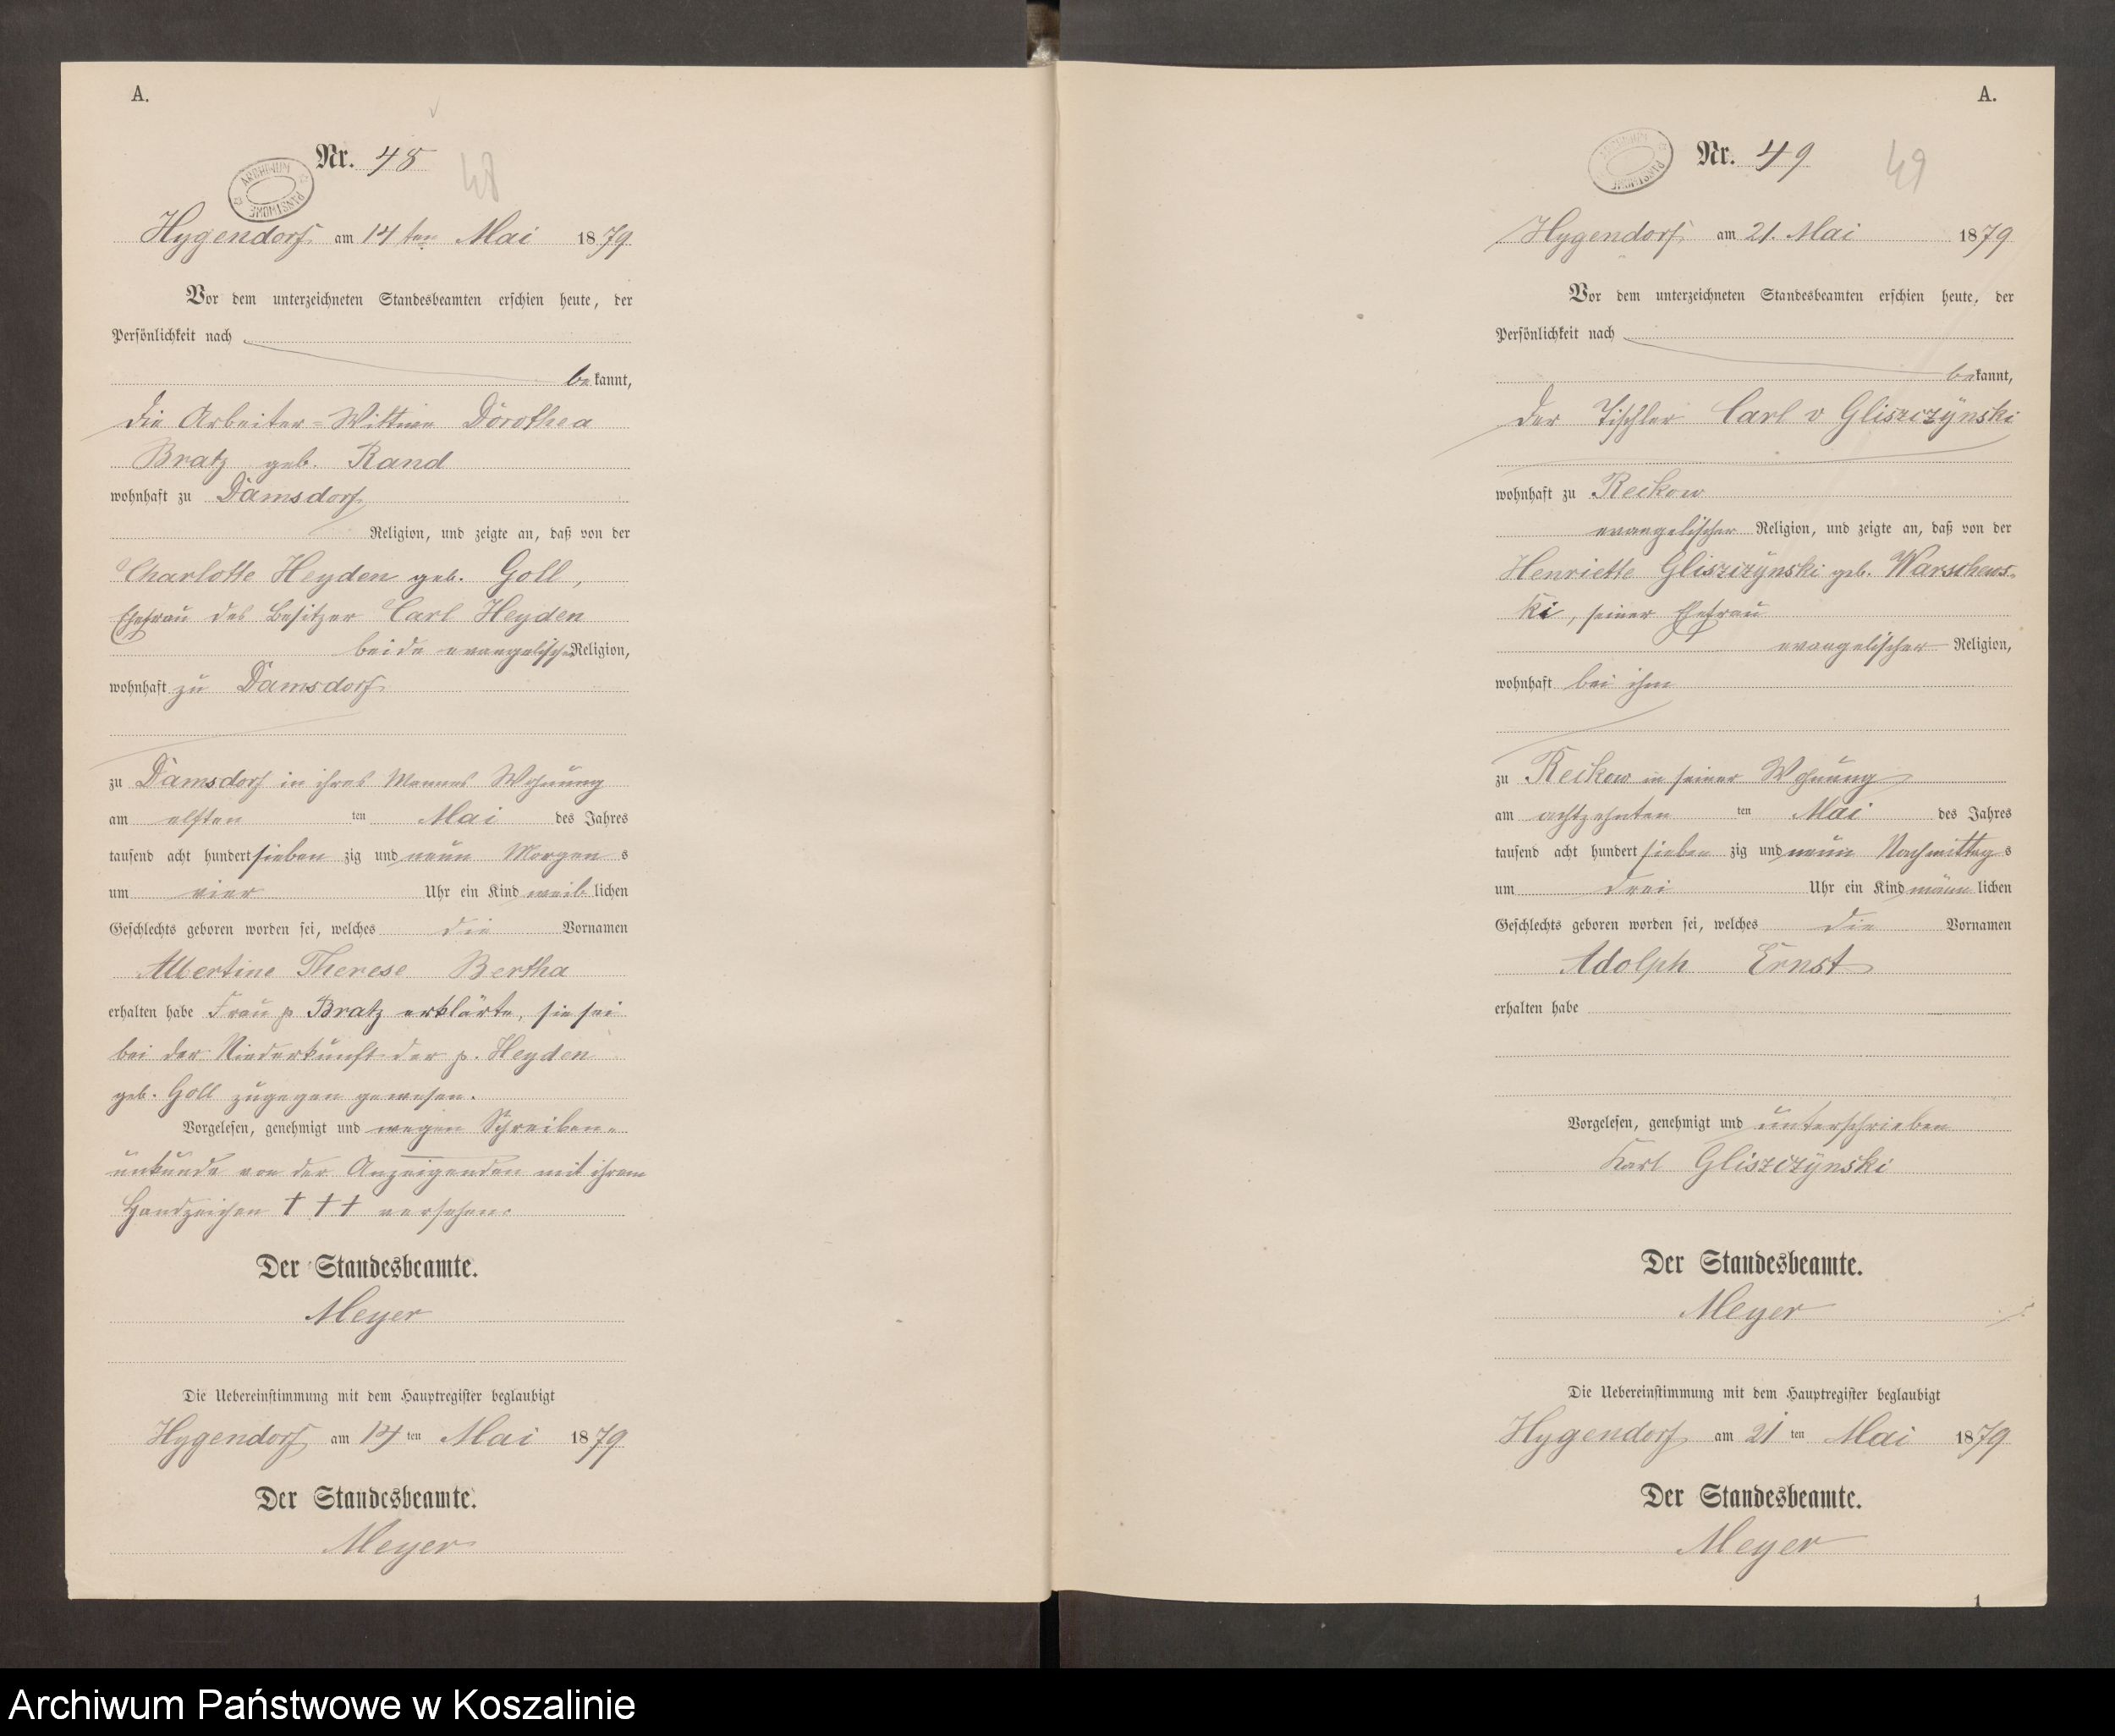 A.
Nr. 48
48
ARCHIWUM PAŃSTWOWE
Hygendorf am 14ten Mai 1879
Vor dem unterzeichneten Standesbeamten erschien heute, der
Persönlichkeit nach
bekannt,
die Arbeiter-Wittwe Dorothea
Bratz geb. Rand
wohnhaft zu Damsdorf
Religion, und zeigte an, daß von der
Charlotte Heyden geb. Goll,
Ehefrau des Besitzer Carl Heyden
beide evangelischer Religion,
wohnhaft zu Damsdorf
zu Damsdorf in ihres Mannes Wohnung
am elften ten Mai des Jahres
tausend acht hundert siebenzig und neun Morgens
um vier Uhr ein Kind weiblichen
Geschlechts geboren worden sei, welches die Vornamen
Albertine Therese Bertha
erhalten habe Frau p Bratz erklärte, sie sei
bei der Niederkunft der p. Heyden
geb. Goll zugegen gewesen.
Vorgelesen, genehmigt und wegen Schreiben-
unkunde von der Anzeigenden mit ihrem
Handzeichen † † † versehen.
Der Standesbeamte.
Meyer
Die Uebereinstimmung mit dem Hauptregister beglaubigt
Hygendorf am 14ten Mai 1879
Der Standesbeamte.
Meyer
A.
Nr. 49
49
ARCHIWUM PAŃSTWOWE
Hygendorf am 21. Mai 1879
Vor dem unterzeichneten Standesbeamten erschien heute, der
Persönlichkeit nach
bekannt,
der Tischler Carl v Gliszczÿnski
wohnhaft zu Reckow
evangelischer Religion, und zeigte an, daß von der
Henriette Gliszczÿnski geb. Warschews-
ki, seiner Ehefrau
evangelischer Religion,
wohnhaft bei ihm
zu Reckow in seiner Wohnung
am achtzehnten ten Mai des Jahres
tausend acht hundert siebenzig und neun Nachmittags
um drei Uhr ein Kind männlichen
Geschlechts geboren worden sei, welches die Vornamen
Adolph Ernst
erhalten habe
Vorgelesen, genehmigt und unterschrieben
Karl Gliszczÿnski
Der Standesbeamte.
Meyer
Die Uebereinstimmung mit dem Hauptregister beglaubigt
Hygendorf am 21ten Mai 1879
Der Standesbeamte.
Meyer
1
Archiwum Państwowe w Koszalinie